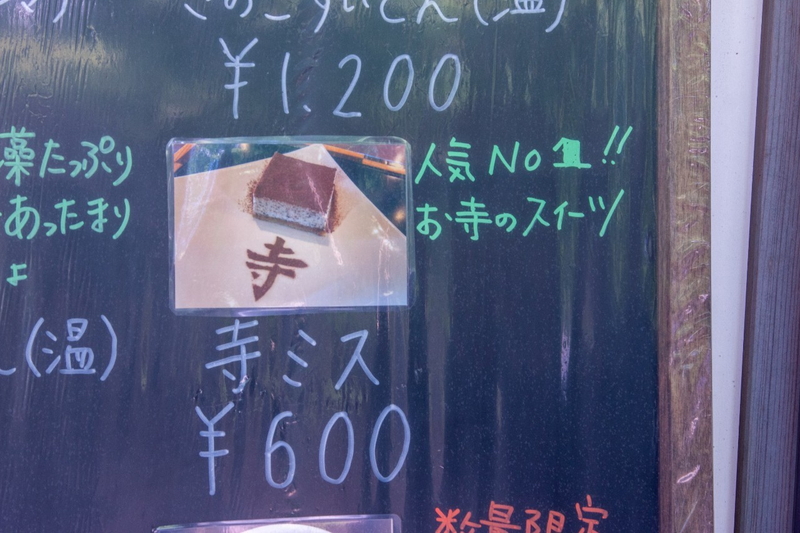 きのこすいとん(温)
¥1.200
薬たっぷり
あったまり
よ
人気No1!!
お寺のスイーツ
寺
(温)
寺ミス
¥600
数量限定